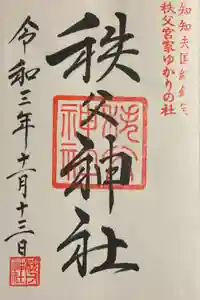 知知夫国総鎮守
秩父宮家ゆかりの社
秩父神社
令和三年十一月十三日